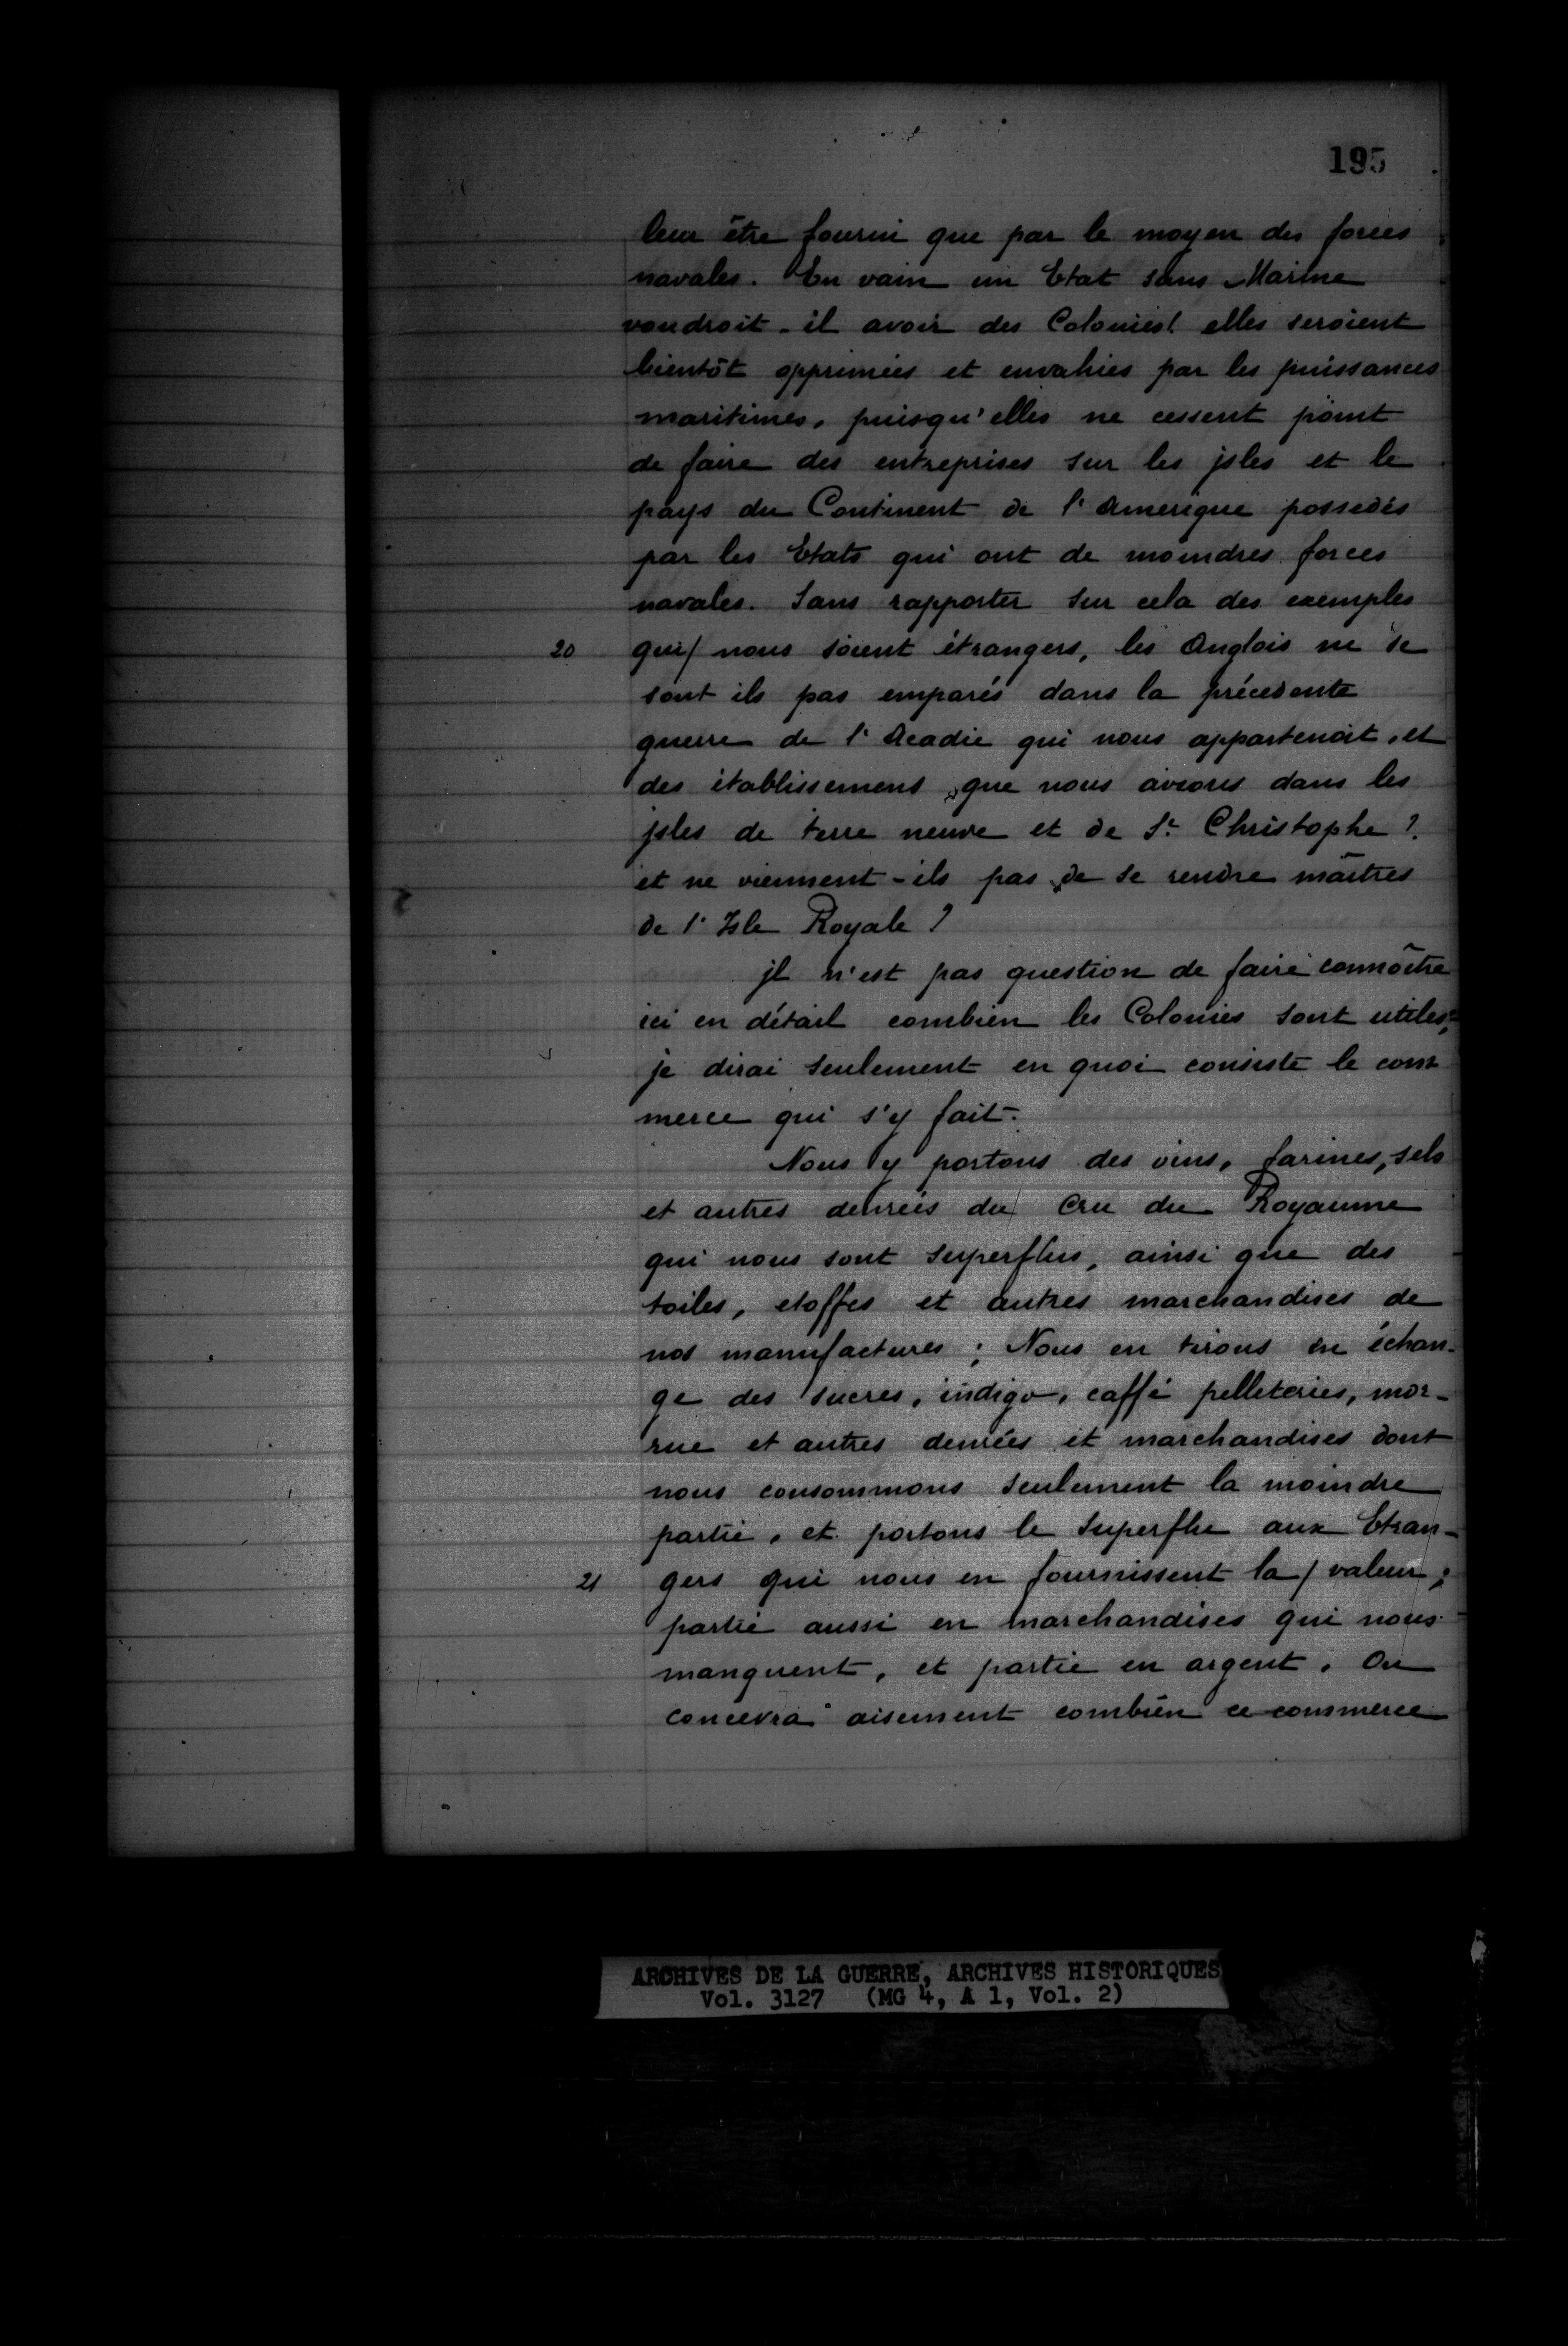 195
leur être fourni que par le moyen des forces
navales. En vain un Etat sans Marine
voudroit-il avoir des Colonies! elles seroient
bientôt opprimées et envahies par les puissances
maritimes, puisqu'elles ne cessent point
de faire des entreprises sur les jsles et le
pays du Continent de l'Amerique possedés
par les Etats qui ont de moindres forces
navales. Sans rapporter sur cela des exemples
20 qui/ nous soient étrangers, les Anglois ne se
sont ils pas emparés dans la précedente
guerre de l'Acadie qui nous appartenoit, et
des établissemens que nous avions dans les
jsles de terre neuve et de St Christophe ?
et ne viennent-ils pas de se rendre maîtres
de l'Isle Royale ?
jl n'est pas question de faire connoître
ici en détail combien les Colonies sont utiles;
je dirai seulement en quoi consiste le com
merce qui s'y fait.
Nous y portons des vins, farines, sels
et autres denrées du Cru du Royaume
qui nous sont superflus, ainsi que des
toiles, etoffes et autres marchandises de
nos manufactures ; Nous en tirons en échan-
ge des sucres, indigo, caffé pelleteries, mor-
rue et autres denrées et marchandises dont
nous consommons seulement la moindre
partie, et portons le superflu aux Etran-
21 gers qui nous en fournissent la / valeur ;
partie aussi en marchandises qui nous
manquent, et partie en argent. On
concevra aisement combien ce commerce
ARCHIVES DE LA GUERRE, ARCHIVES HISTORIQUES
Vol. 3127 (MG 4, A 1, Vol. 2)